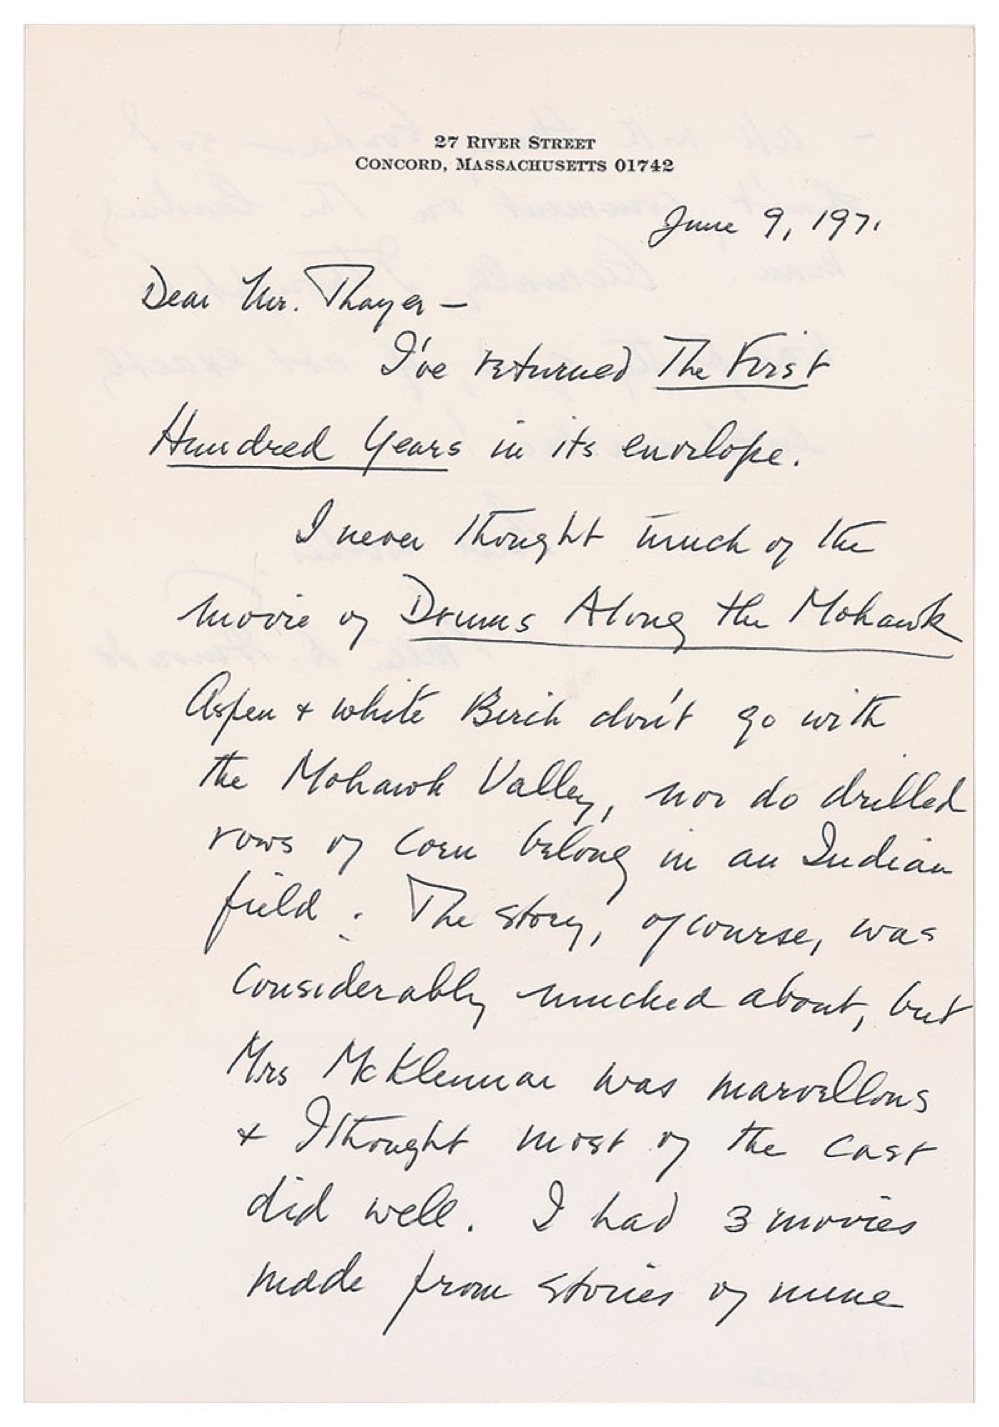 27 River Street
Concord, Massachusetts 01742
June 9, 1971
Dear Mr. Thayer —
I've returned The First
Hundred Years in its envelope.
I never thought much of the
movie of Drums Along the Mohawk
Aspen & white Birch don't go with
the Mohawk Valley, nor do drilled
rows of corn belong in an Indian
field. The story, of course, was
considerably mucked about, but
Mrs McKlennar was marvellous
& I thought most of the cast
did well. I had 3 movies
made from stories of mine